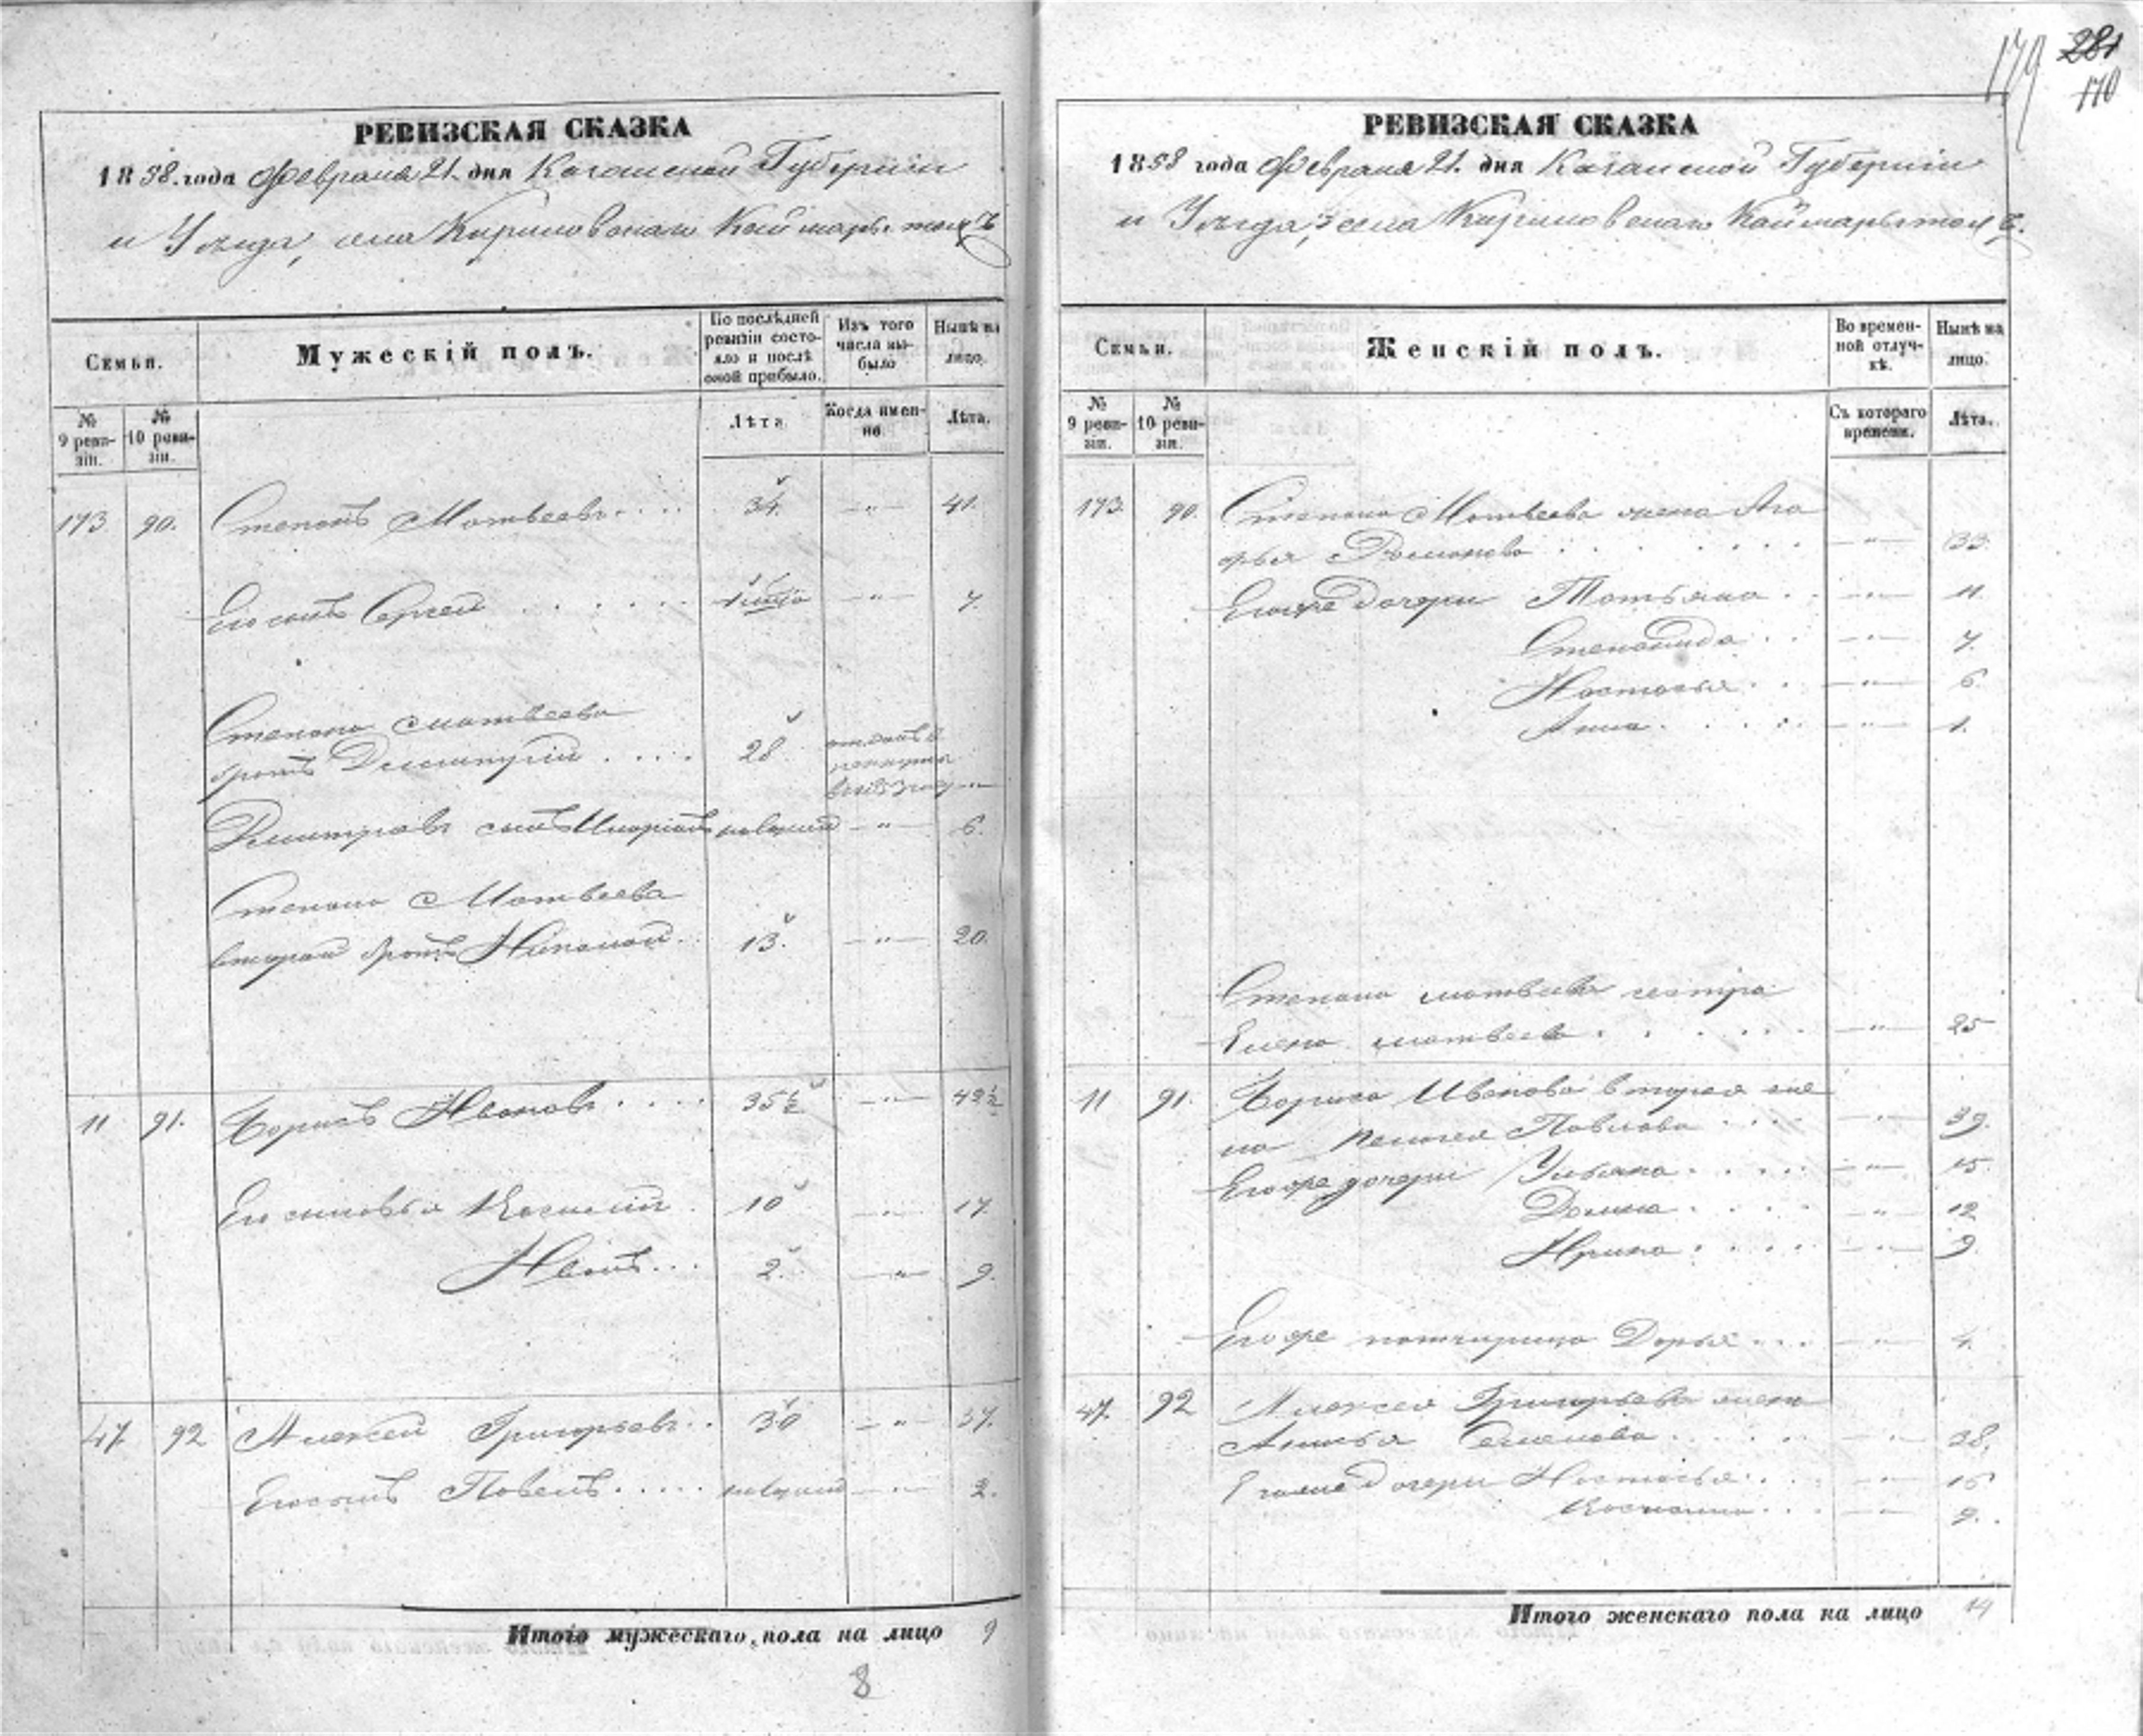 179 281
170
РЕВИЗСКАЯ СКАЗКА
1858. года Февраля 21. дня Казанской Губернiи
и Уѣзда, села Кириловскаго Каймары тожъ
Семьи.
Мужескій полъ.
По послѣдней ревизіи состояло и послѣ оной прибыло.
Изъ того числа выбыло
Нынѣ на лицо.
№ 9 ревизіи.
№ 10 ревизіи.
Лѣта
Когда именно
Лѣта.
173 90. Степанъ Матвеевъ.... 34. —"— 41.
Его сынъ Сергей ...... —"— 7.
Степана Матвеева
братъ Дмитрій .... 28.
отданъ в
рекруты
—"—
Дмитріевъ сынъ новорож —"— 6.
Степана Матвеева
вторай братъ Николай. 13. —"— 20.
11 91. Борисъ Ивановъ.... 35½ —"— 42½
Его сыновья Василій. 10 —"— 17.
Иванъ... 2. —"— 9.
47. 92 Алексей Григорьевъ.. 30 —"— 37.
Его сынъ Павелъ..... новорож —"— 2.
Итого мужескаго пола на лицо 9
8
РЕВИЗСКАЯ СКАЗКА
1858 года Февраля 21. дня Казанской Губернiи
и Уѣзда, села Кириловскаго Каймары тожъ.
Семьи.
Женскій полъ.
Во временной отлучкѣ.
Нынѣ на лицо.
№ 9 ревизіи.
№ 10 ревизіи.
Съ котораго времени.
Лѣта.
173. 90. Степана Матвеева жена Ага
фья Романова ...... —"— 33.
Егоже дочери Татьяна.. —"— 11.
Степанида.. —"— 7.
Настасья.. —"— 6.
Анна..... —"— 1.
Степана Матвеева сестра
Елена Матвеева...... —"— 25
11 91. Бориса Иванова вторая же
на Пелагея Павлова ... —"— 39.
Егоже дочери Ульяна..... —"— 15.
Домна.... —"— 12
Ирина..... —"— 9.
Егоже патчерица Дарья... —"— 4.
47. 92 Алексея Григорьева жена
Анисья Семенова..... —"— 38.
Дочери Настасья.. —"— 15
—"— 9.
Итого женскаго пола на лицо 14